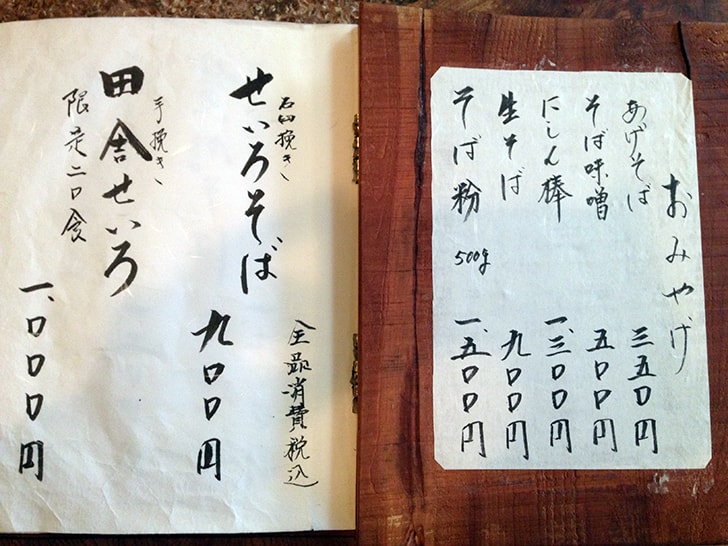 全品消費税込
石臼挽き、
せいろそば 九〇〇円
手挽き、
田舎せいろ 一、〇〇〇円
限定二〇食
おみやげ
あげそば 三五〇円
そば味噌 五〇〇円
にしん棒 一、三〇〇円
生そば 九〇〇円
そば粉 500g 一、五〇〇円